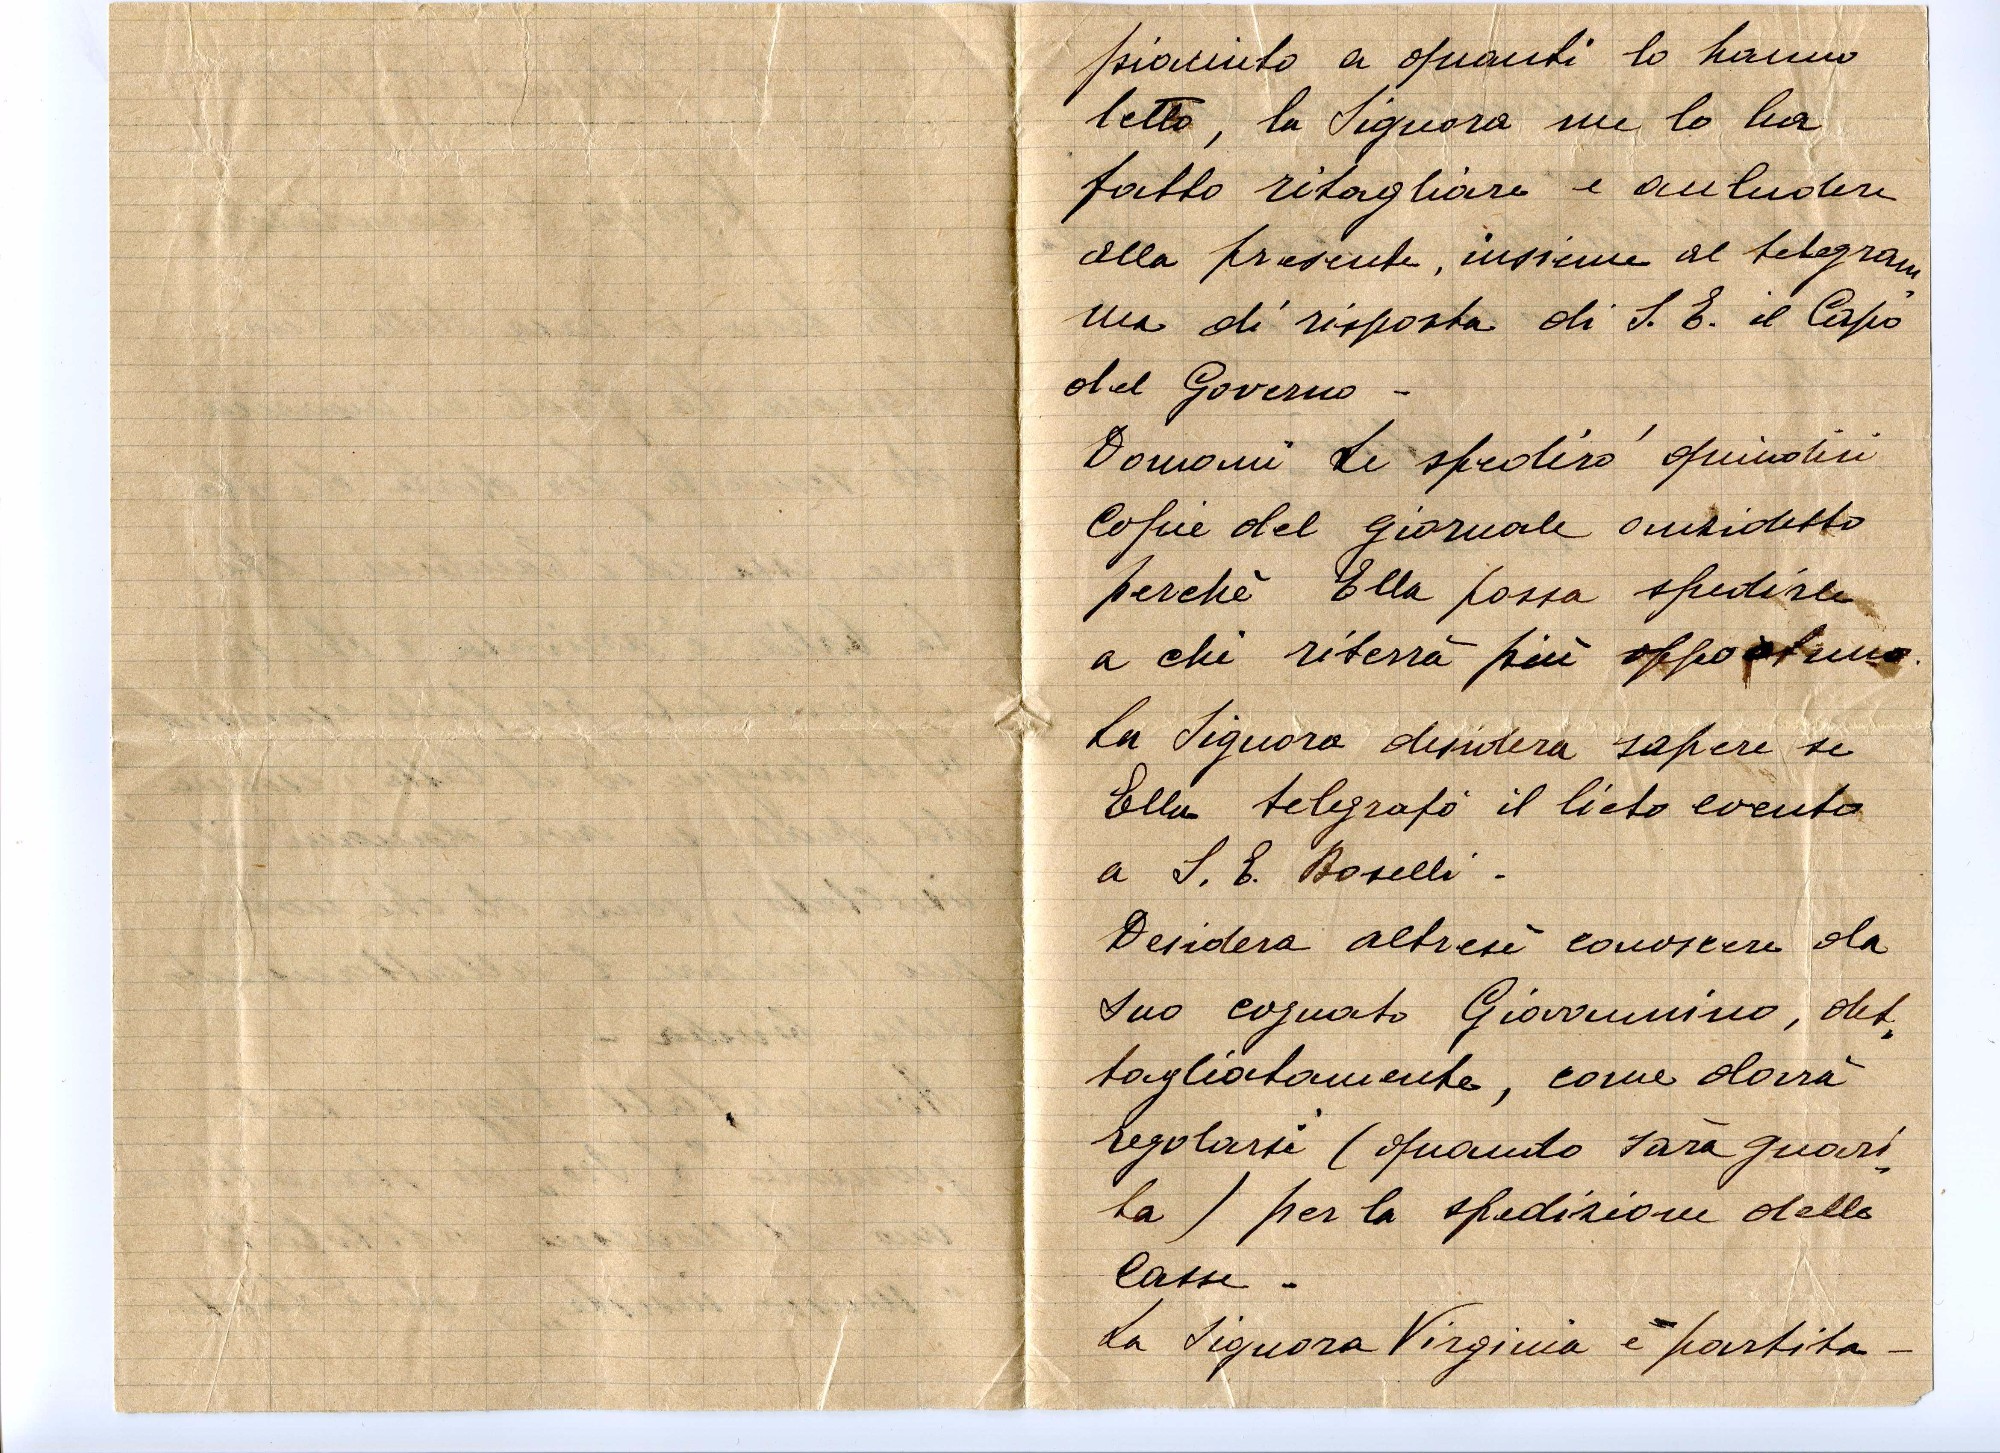 piaciuto a quanti lo hanno
letto, la Signora me lo ha
fatto ritagliare e accludere
alla presente, insieme al telegram
ma di risposta di S. E. il Capo
del Governo -
Domani Le spedirò quindici
Copie del giornale anzidetto
perchè Ella possa spedirle
a chi riterrà più opportuno.
La Signora desidera sapere se
Ella telegrafò il lieto evento
a S. E. Boselli -
Desidera altresì conoscere da
suo cognato Giovannino, det,
tagliatamente, come dovrà
regolarsi (quando sarà guari,
ta) per la spedizione delle
Casse -
La Signora Virginia è partita -